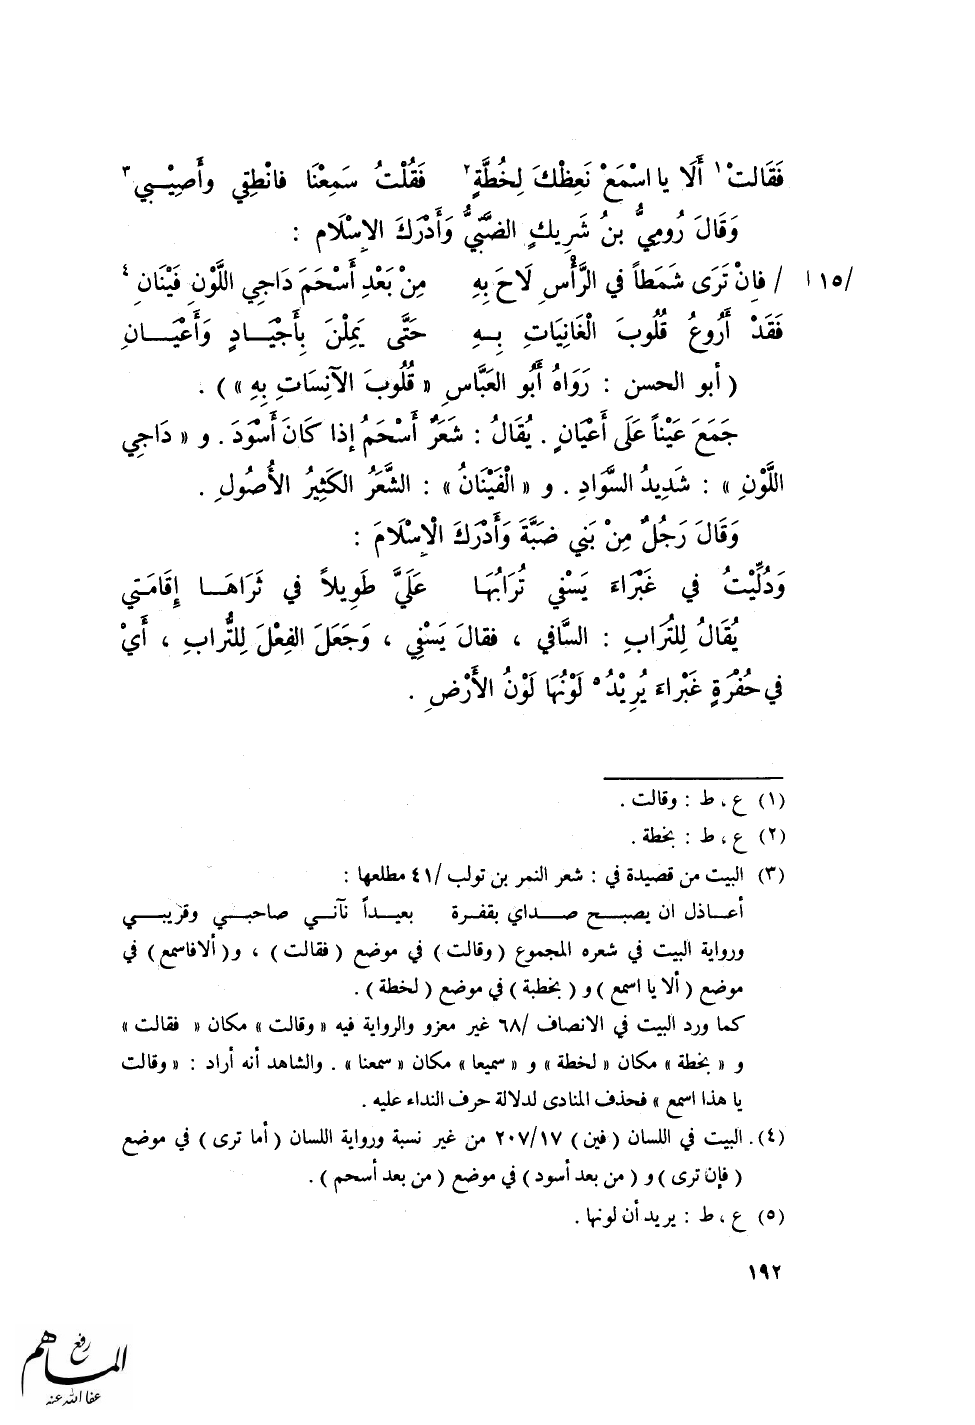 فَقَالتْ١ أَلَا يا اسْمَعْ نَعِظْكَ لِخُطَّةٍ٢ فَقُلْتُ سَمِعْنَا فانْطِقِي وأَصِيْبي٣
وَقَالَ رُومِيُّ بنُ شَرِيكٍ الضَّبِّيُّ وَأَدْرَكَ الإِسْلَام :
/١٥ ا / فإنْ تَرَى شَمَطاً في الرَّأْسِ لَاحَ بِهِ مِنْ بَعْدِ أَسْحَمَ دَاجِي اللَّوْنِ فَيْنَانِ٤
فَقَدْ أَرُوعُ قُلُوبَ الْغَانِيَاتِ بِهِ حَتَّى يَمِلْنَ بِأَجْيَادٍ وَأَعْيَانِ
( أبو الحسن : رَوَاهُ أَبُو العَبَّاسِ « قُلُوبَ الآنِسَاتِ بِهِ » ) .
جَمَعَ عَيْناً عَلَى أَعْيَانٍ . يُقَالُ : شَعَرٌ أَسْحَمُ إذا كَانَ أَسْوَدَ . و « دَاجِي
اللَّوْنِ » : شَدِيدُ السَّوَادِ . و « الْفَيْنَانُ » : الشَّعَرُ الكَثِيرُ الأُصُولِ .
وَقَالَ رَجُلٌ مِنْ بَنِي ضَبَّةَ وَأَدْرَكَ الْإِسْلَامَ :
وَدُلِّيْتُ في غَبْرَاءَ يَسْفِي تُرَابُهَا عَلَيَّ طَوِيلاً في ثَرَاهَا إِقَامَتي
يُقَالُ لِلتُرَابِ : السَّافي ، فقالَ يَسْفِي ، وَجَعَلَ الفِعْلَ لِلتُّرابِ ، أَيْ
في حُفْرَةٍ غَبْراءَ يُرِيْدُ٥ لَوْنُهَا لَوْنُ الأَرْضِ .
(١) ع ، ط : وقالت .
(٢) ع ، ط : بخطة .
(٣) البيت من قصيدة في : شعر النمر بن تولب /٤١ مطلعها :
أعاذل ان يصبح صداي بقفرة بعيداً نآني صاحبي وقريبي
ورواية البيت في شعره المجموع ( وقالت ) في موضع ( فقالت ) ، و( ألافاسمع ) في
موضع ( ألا يا اسمع ) و ( بخطبة ) في موضع ( لخطة ) .
كما ورد البيت في الانصاف /٦٨ غير معزو والرواية فيه « وقالت » مكان « فقالت »
و « بخطة » مكان « لخطة » و « سميعا » مكان « سمعنا » . والشاهد أنه أراد : « وقالت
يا هذا اسمع » فحذف المنادى لدلالة حرف النداء عليه .
(٤) . البيت في اللسان ( فين ) ٢٠٧/١٧ من غير نسبة ورواية اللسان ( أما ترى ) في موضع
( فإن ترى ) و ( من بعد أسود ) في موضع ( من بعد أسحم ) .
(٥) ع ، ط : يريد أن لونها .
١٩٢
رفع
المساهم
عفا الله عنه